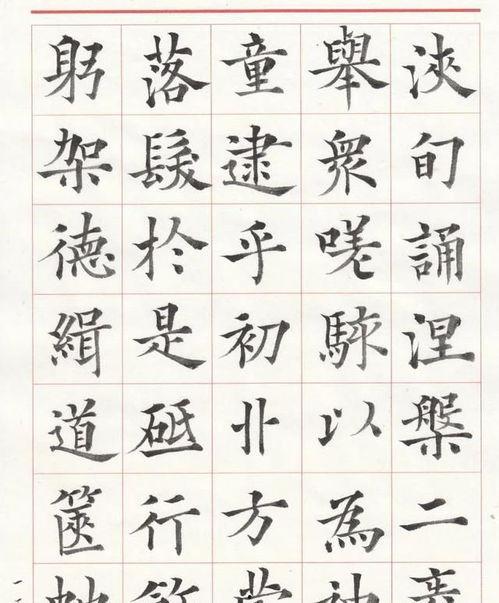 浹旬誦涅槃二
舉衆嗟駭以為神
童逮乎初丱方
落髮於是砥行飭
躬架德緝道篋